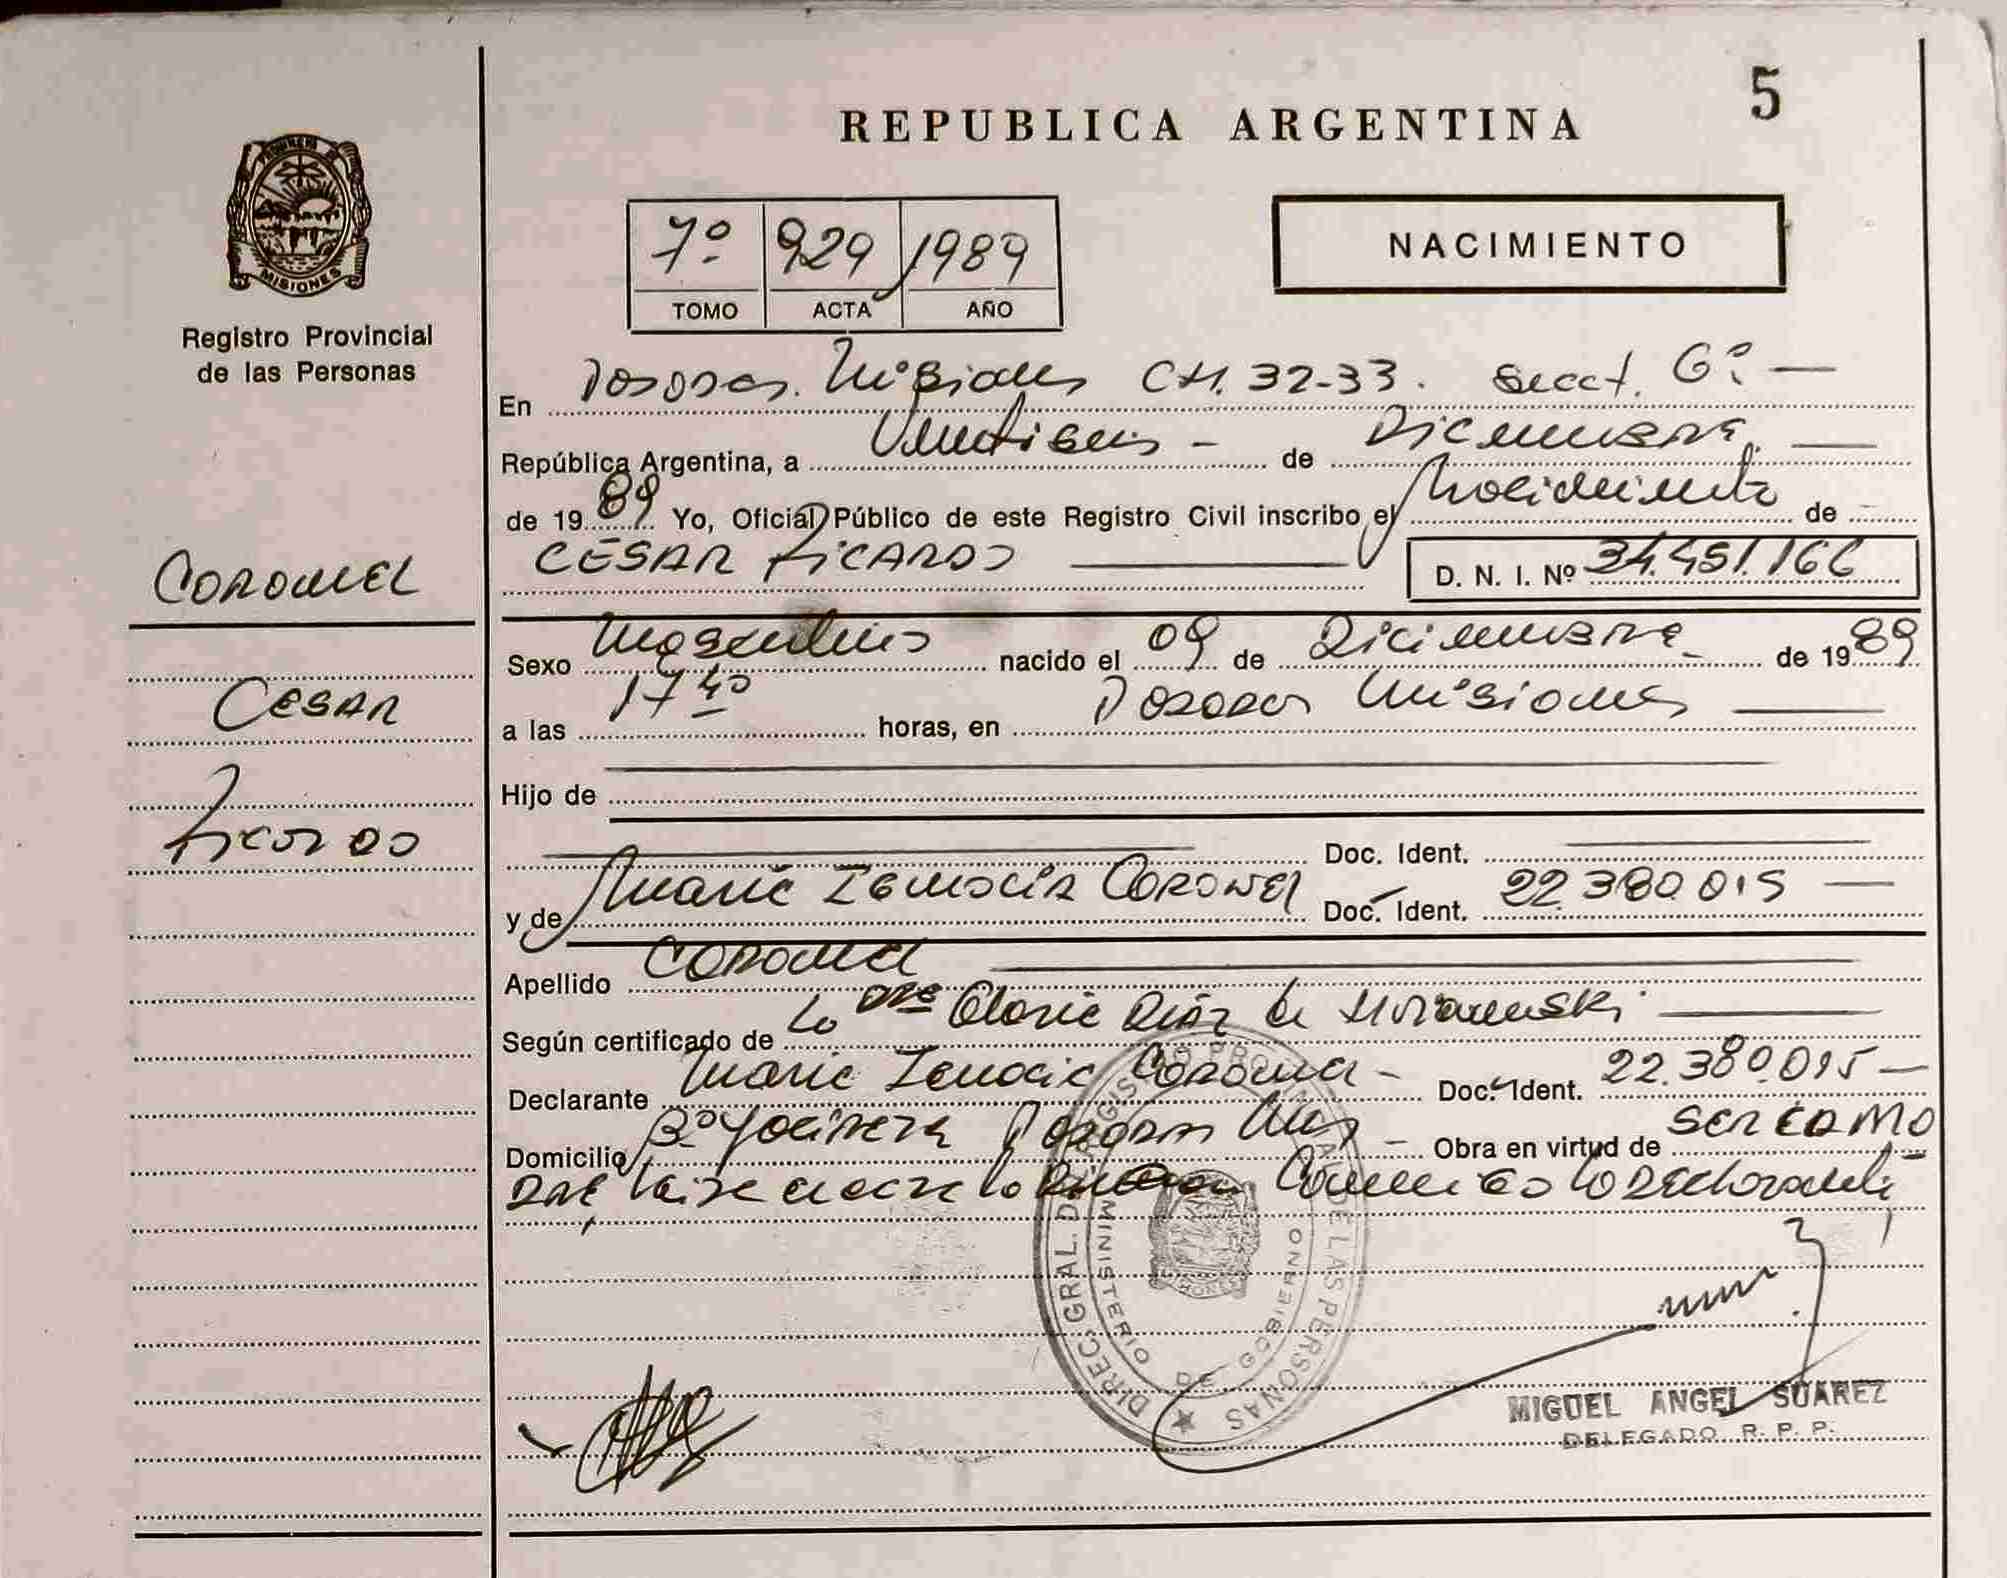 REPUBLICA ARGENTINA
5
PROVINCIA DE
MISIONES
Registro Provincial
de las Personas
7º 929 1989
TOMO ACTA AÑO
NACIMIENTO
En Posadas. Misiones CH. 32-33. Secc. 6º. —
República Argentina, a Veintiseis - de Diciembre. —
de 1989 Yo, Oficial Público de este Registro Civil inscribo el Nacimiento de
CÉSAR RICARDO — D. N. I. Nº 34.451.166
CORONEL
CESAR
Ricardo
Sexo Masculino nacido el 09 de Diciembre de 1989
a las 17 40 horas, en Posadas Misiones —
Hijo de —
— Doc. Ident. —
y de Maria Coronel Doc. Ident. 22.380.015 —
Apellido CORONEL —
Según certificado de La Dra Gloria Diaz de —
Declarante Maria Coronel - Doc. Ident. 22.380.015 —
Domicilio Bº Posadas Mnes - Obra en virtud de ser como
la declarante
DIREC. GRAL. DE REGISTRO PROVINCIAL DE LAS PERSONAS
MINISTERIO DE GOBIERNO
MIGUEL ANGEL SUAREZ
DELEGADO R. P. P.